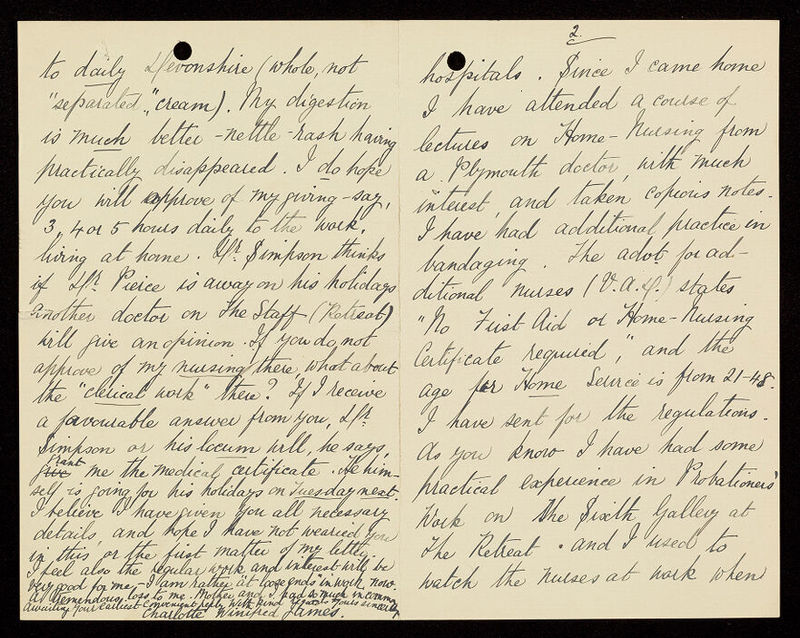 to daily Devonshire (whole, not
"separated," cream). My digestion
is much better - nettle-rash having
practically disappeared. I do hope
you will approve of my giving - say,
3, 4 or 5 hours daily to the work,
living at home. Dr. Simpson thinks
if Dr. Pierce is away on his holidays
another doctor on the Staff (Retreat)
will give an opinion. If you do not
approve of my nursing there what about
the "clerical work" there? If I receive
a favourable answer from you, Dr.
Simpson or his locum will, he says,
grant me the medical certificate. He him-
self is going for his holidays on Tuesday next.
I believe I have given you all necessary
details, and hope I have not wearied you
in this, or the first matter of my letter.
I feel also the regular work and interest will be
very good for me, - I am rather at loose ends in work now.
A tremendous loss to me. Mother and I had so much in common
Awaiting your earliest convenient reply With kind regards Yours sincerely
Charlotte Winifred James.
2.
hospitals. Since I came home
I have attended a course of
lectures on Home-Nursing from
a Plymouth doctor, with much
interest, and taken copious notes.
I have had additional practice in
bandaging. The advt. for ad-
ditional nurses (V.A.D.) states
"No First Aid or Home-Nursing
Certificate required," and the
age for Home Service is from 21-48.
I have sent for the regulations.
As you know I have had some
practical experience in Probationers'
Work on the Sixth Gallery at
The Retreat - and I used to
watch the nurses at work when